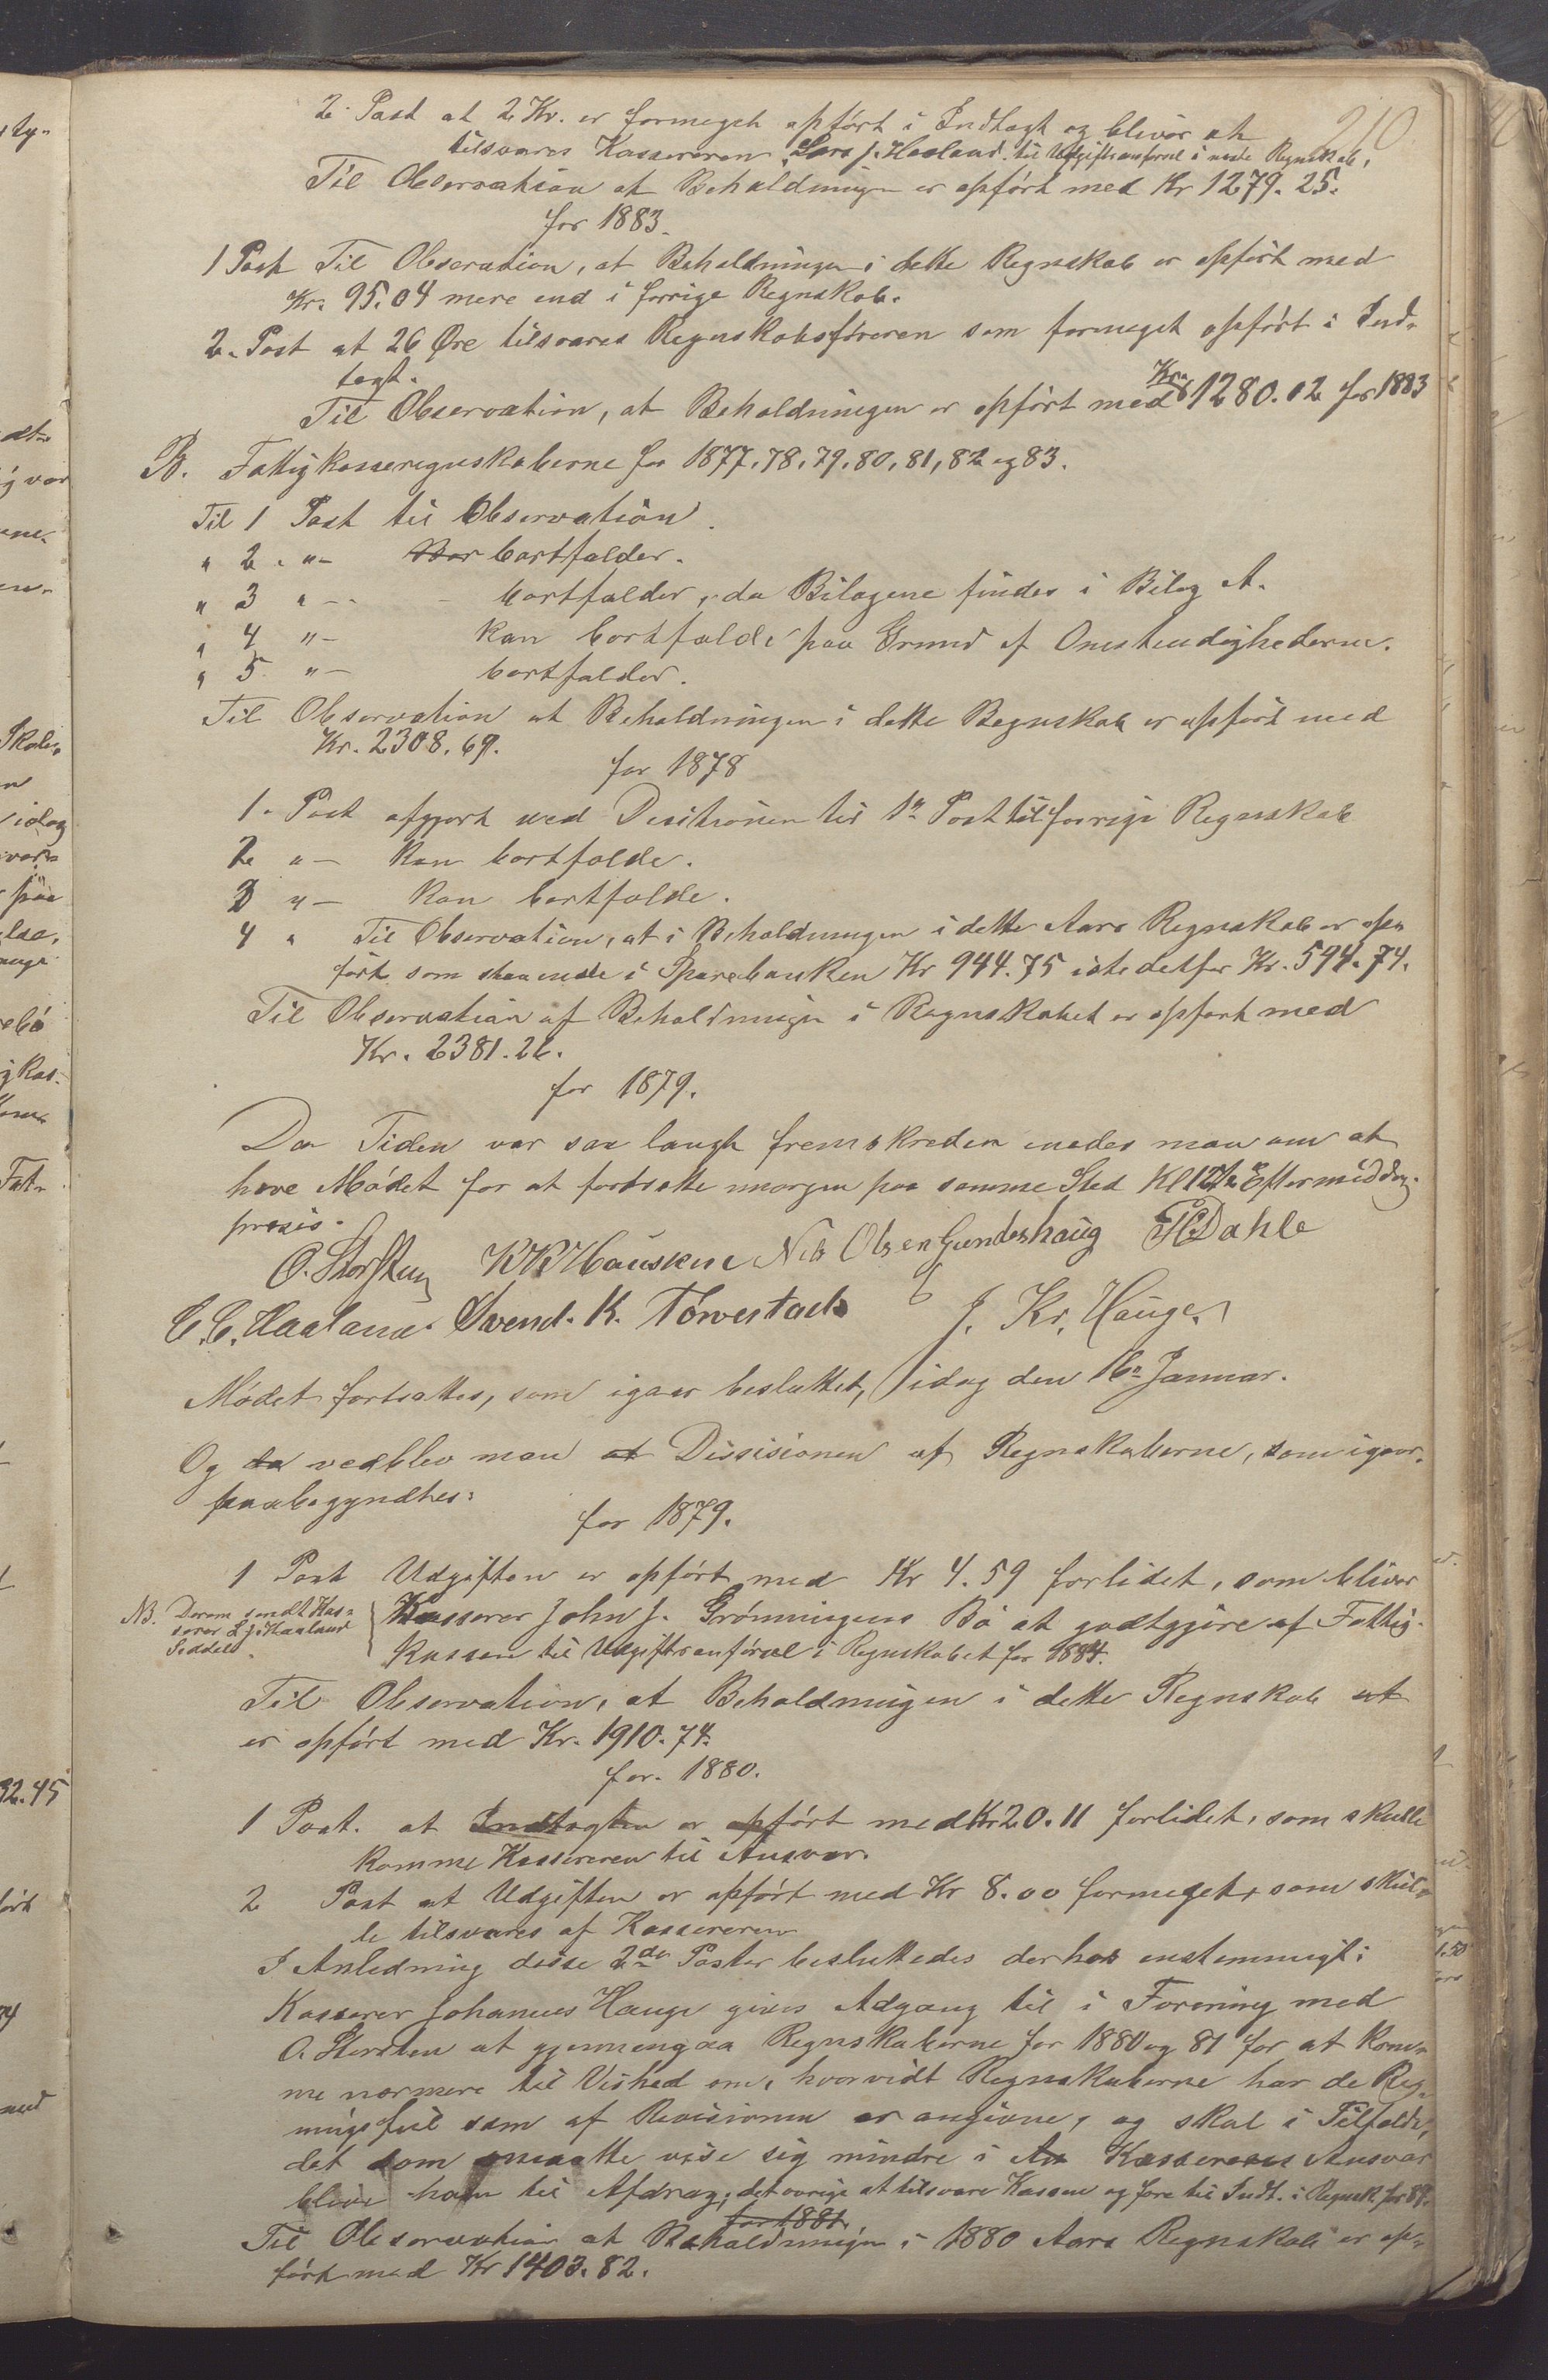 210
2. Post at 2 Kr. er formeget opført i Indtægt og bliver at
tilsvares Kassereren Lars J. Haaland til Udgiftsanførsel i næste Regnskab.
Til Observation at Beholdningen er opført med Kr 1279. 25.
for 1883.
1 Post Til Observation, at Beholdningen i dette Regnskab er opført med
Kr. 95.04 mere end i forrige Regnskab.
2. Post at 26 Øre tilsvares Regnskabsføreren som formeget opført i Ind-
tægt.
Til Observation, at Beholdningen er opført med Kr. 1280.02 for 1883
B. Fattigkasseregnskaberne for 1877, 78, 79, 80, 81, 82 og 83.
Til 1 Post til Observation.
" 2 . "- Bor bortfalder.
" 3 " - bortfalder, da Bilagene findes i Bilag A.
" 4 "- kan bortfalde paa Grund af Omstendighederne.
" 5 "- bortfalder.
Til Observation at Beholdningen i dette Regnskab er opført med
Kr. 2308. 69.
for 1878
1. Post afgjort ved Desitionen til 1n Post til forrige Regnskab
2 "- kan bortfalde.
3 "- kan bortfalde.
4 " Til Observation, at i Beholdningen i dette Aars Regnskab er op-
ført som staaende i Sparebanken Kr 944.75 istedetfor Kr. 594.74.
Til Observation af Beholdningen i Regnskabet er opført med
Kr. 2381.26.
for 1879.
Da Tiden var saa langt fremskreden enedes man om at
hæve Mødet for at fortsætte morgen paa samme Sted Kl 12 1/2 Eftermiddag
præsis.
O. Storsteen K K Hausken Nils Olsen Gundeshaug T. Dahle
C. C. Haaland Svend. K. Torvestad J. Kr. Hauge.
Mødet fortsattes, som igaar besluttet, idag den 16n Januar.
Og da vedblev man at Dissisionen af Regnskaberne, som igaar
paabegyndtes:
for 1879.
1 Post Udgiften er opført med Kr 4.59 forlidet, som bliver
NB. Derom sendt Kas-
serer L J Haaland
Seddel.
Kasserer John J. Grønningens Bo at godtgjøre af Fattig-
kassen til Udgiftsanførsel i Regnskabet for 1884.
Til Observation, at Beholdningen i dette Regnskab at
er opført med Kr. 1910.74.
for. 1880.
1 Post. at Indtægten er opført med Kr 20.11 forlidet, som skulle
komme Kassereren til Ansvar.
2 Post at Udgiften er opført med Kr 8.00 formeget, som skul-
le tilsvares af Kassereren
I Anledning disse 2de Poster besluttedes derhos enstemmigt:
Kasserer Johannes Hauge gives Adgang til i Forening med
O. Storsteen at gjennemgaa Regnskaberne for 1880 og 81 for at kom-
me nærmere til Vished om, hvorvidt Regnskaberne har de Reg-
ningsfeil som af Revisionen er angivne, og skal i Tilfælde,
det som maatte vise sig mindre i An Kassererens Ansvar
blive ham til Afdrag, det øvrige at tilsvare Kassen og føre til Indt. i Regnsk. for 84.
for 1881.
Til Observation at Beholdningen i 1880 Aars Regnskab er op-
ført med Kr 1403.82.